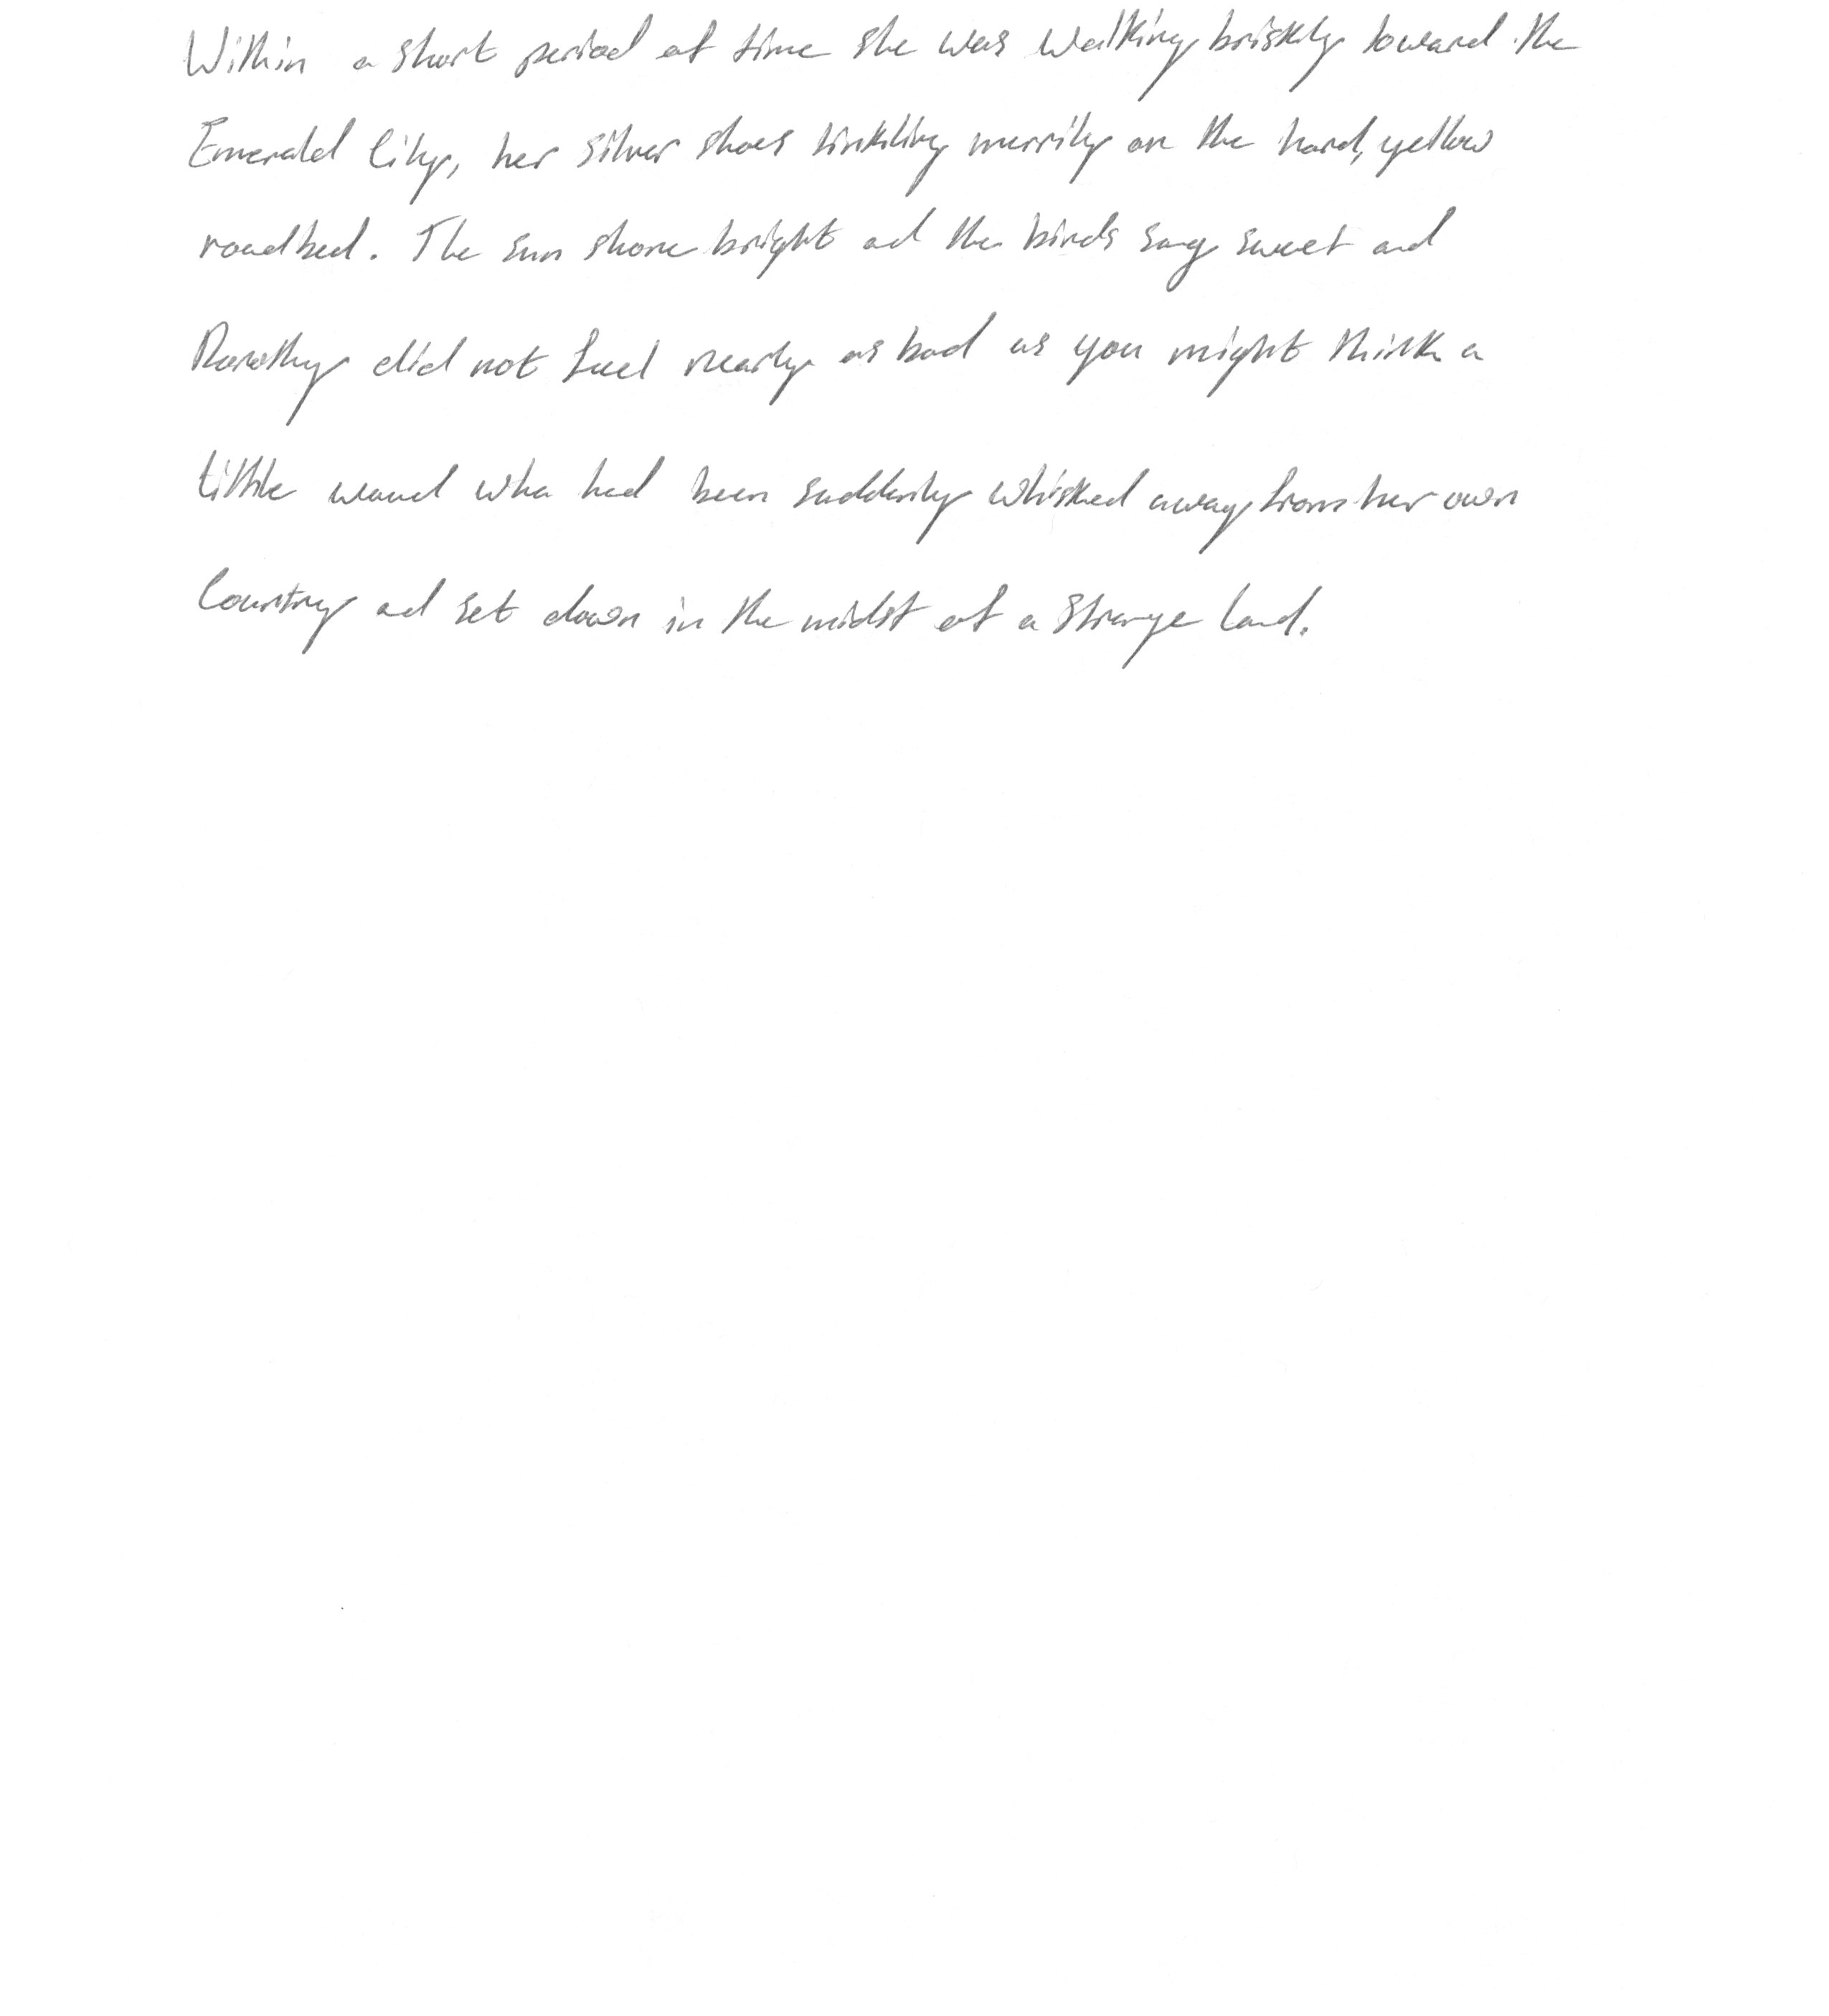 Within a short period of time she was walking briskly toward the
Emerald City, her silver shoes tinkling merrily on the hard, yellow
roadbed. The sun shone bright and the birds sang sweet and
Dorothy did not feel nearly as bad as you might think a
little would who had been suddenly whisked away from her own
Country and set down in the midst of a strange land.